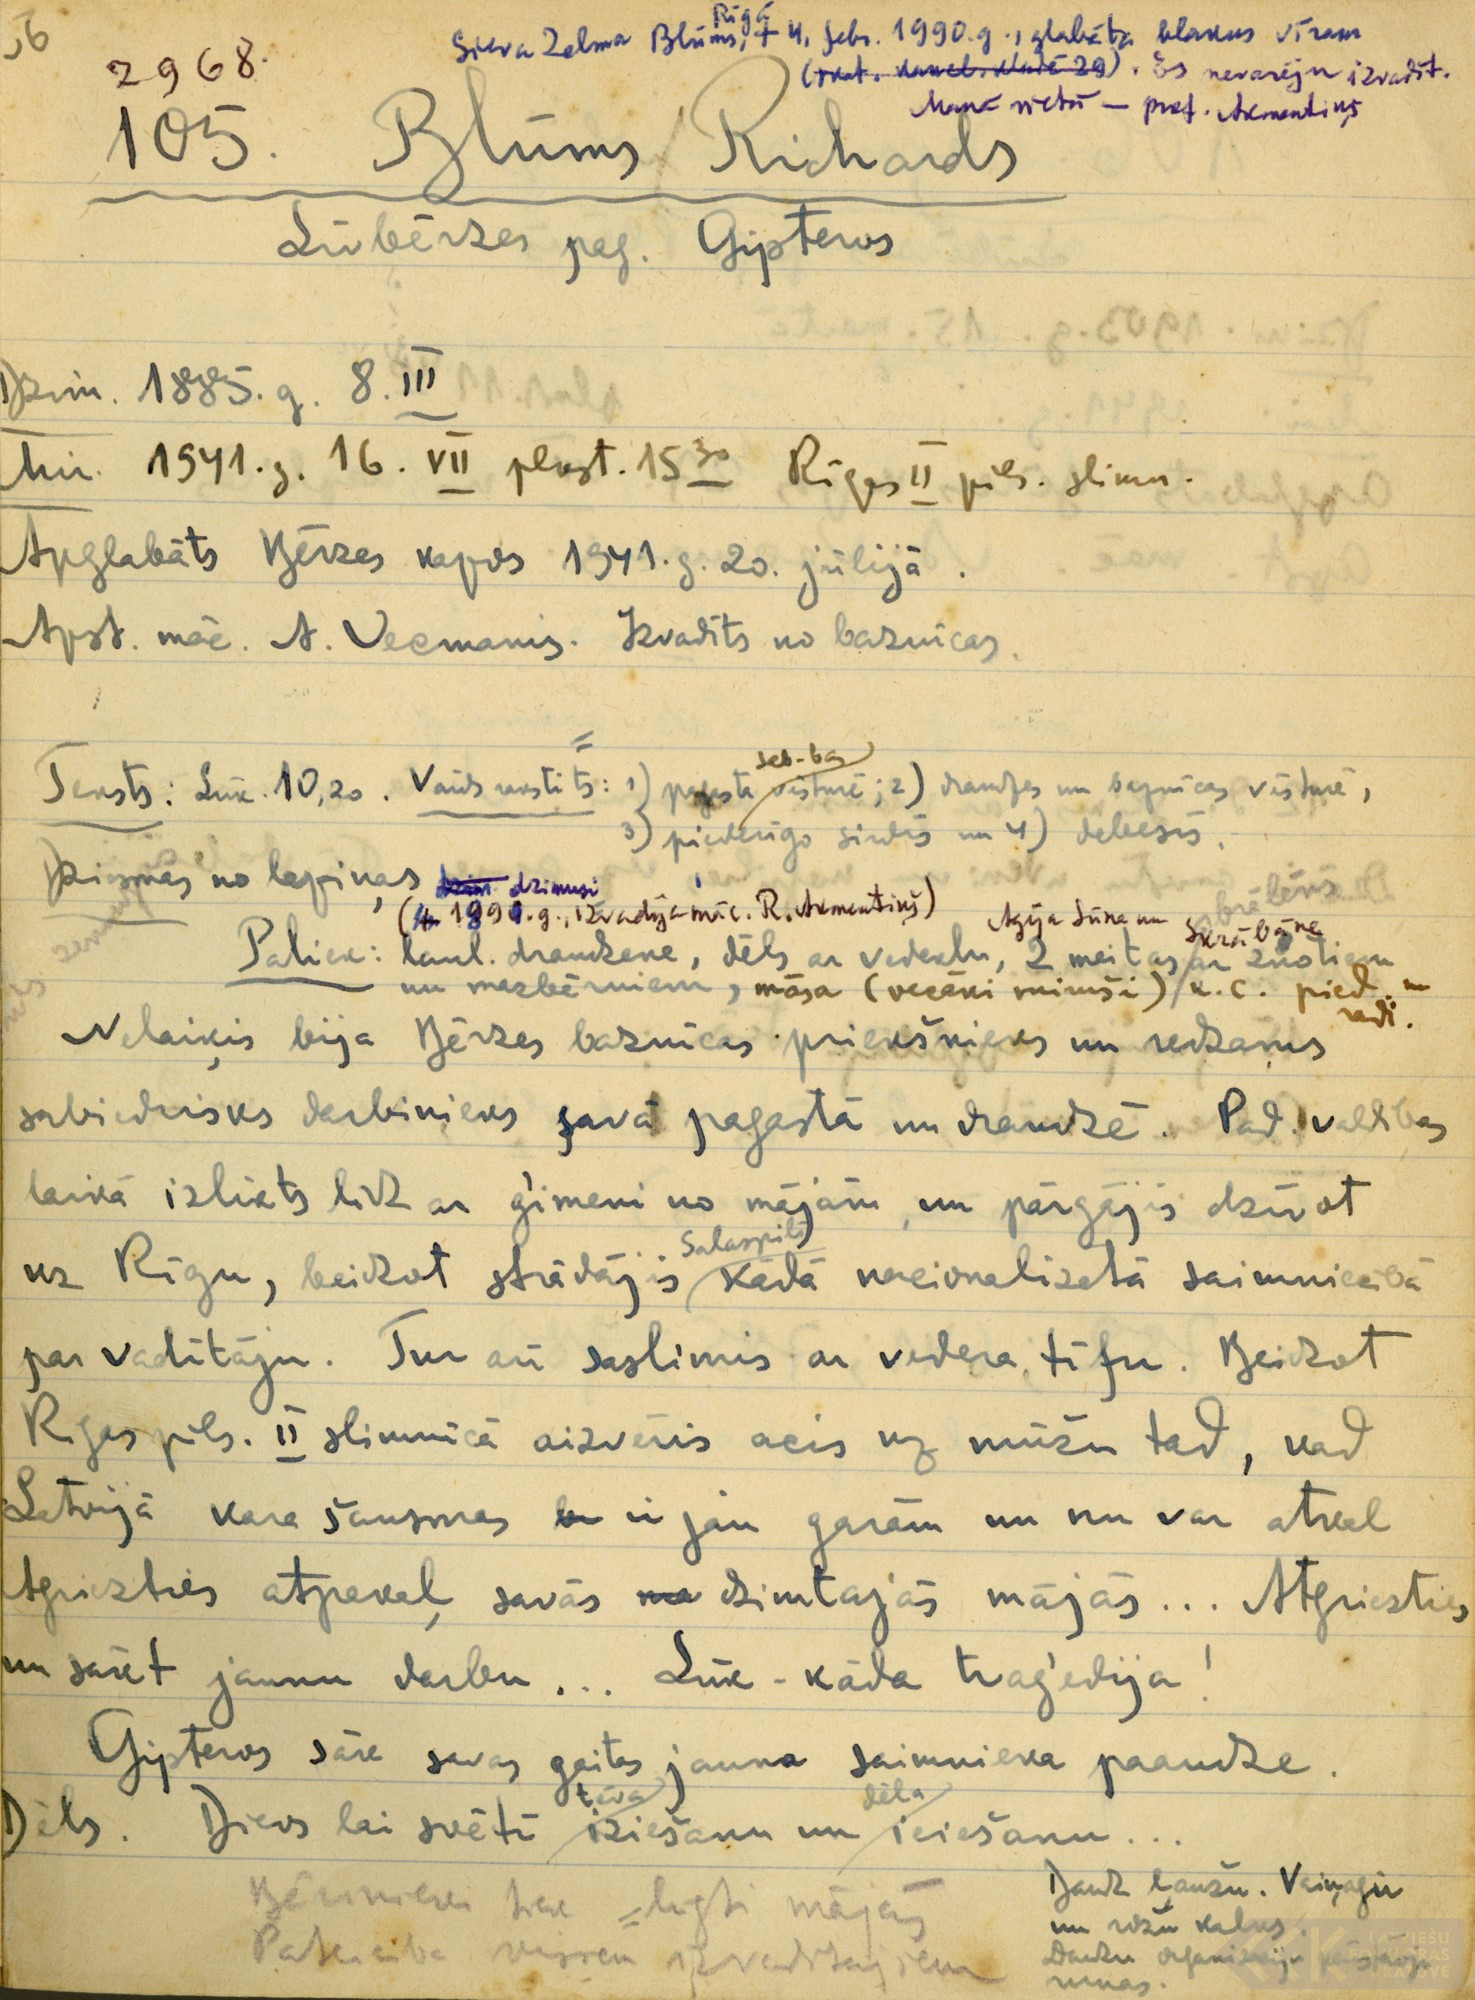 56
2968.
Sieva Zelma Blūms, Rīgā † 4. febr. 1990.g., glabāta blakus vīram
(skat. kancel. kladē 29). Es nevarēju izvadīt.
Manā vietā — prof. Akmentiņš
105. Blūms Richards
Līvbērzes pag. Gipteros
Dzim. 1885.g. 8. III
Mir. 1941.g. 16. VII plkst. 15 30 Rīgas II pils. slimn.
Apglabāts Bērzes kapos 1941.g. 20. jūlijā.
Apst. māc. A. Vecmanis. Izvadīts no baznīcas.
Teksts: Lūk. 10,20. Vārds rakstīts: 1) pagasta sab-bas vēsturē; 2) draudzes un baznīcas vēsturē,
3) piederīgo sirdīs un 4) debesīs.
Dziesmas no lapiņas
dzim. dzimusi
( 1990.g., izvadīja māc. R. Akmentiņš)
Paliek: laul. draudzene, dēls ar vedeklu, 2 meitas Skrābāne ar znotiem
un mazbērniem, māsa (vecāki miruši) k.c. pied. un radi.
Nelaiķis bija Bērzes baznīcas priekšnieks un redzams
sabiedrisks darbinieks savā pagastā un draudzē. Pad. valdības
laikā izlikts līdz ar ģimeni no mājām, un pārgājis dzīvot
uz Rīgu, beidzot strādājis Salaspilī kādā nacionalizētā saimniecībā
par vadītāju. Tur arī saslimis ar vēdera tīfu. Beidzot
Rīgas pils. II slimnīcā aizvēris acis uz mūžu tad, kad
Latvijā kara šausmas ir jau garām un nu var atkal
Atgriezties atpakaļ savās dzimtajās mājās... Atgriezties
un sākt jaunu darbu... Lūk - kāda traģēdija!
Gipteros sāk savas gaitas jauna saimnieka paaudze.
Dēls. Dievs lai svētī tēva iziešanu un dēla ieiešanu...
Bērinieki tiek lūgti mājās
Pateicība visiem izvadītājiem
Daudz ļaužu. Vaiņagu
un rožu kalns.
Daudzu organizāciju pārstāvju
runas.